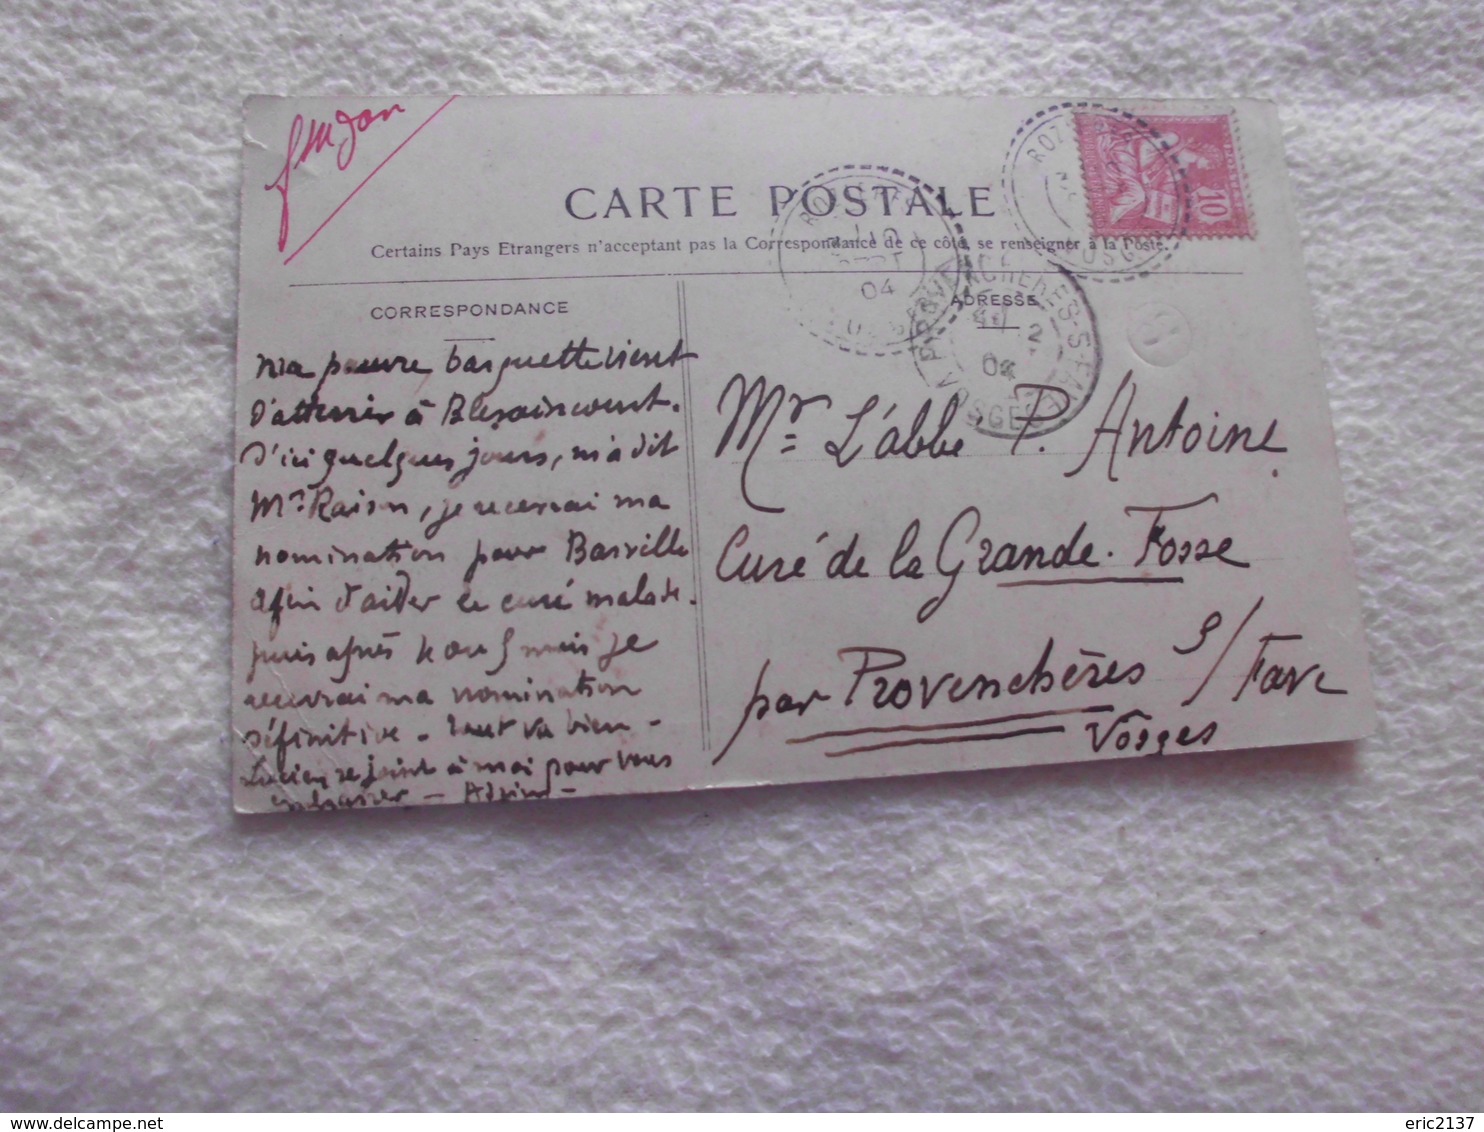 CARTE POSTALE
Certains Pays Etrangers n'acceptant pas la Correspondance de ce côté, se renseigner à la Poste.
CORRESPONDANCE
ma pauvre barquette vient
d'atterrir à Blevaincourt.
D'ici quelques jours, m'a dit
Mr Raison, je recevrai ma
nomination pour
afin d'aider le curé malade.
puis après 4 ou 5 mois je
recevrai ma nomination
définitive. Tout va bien -
Lucien se joint à moi pour vous
embrasser -
ADRESSE
Mr L'abbé P. Antoine
Curé de la Grande-Fosse
par Provenchères s/ Fave
Vosges
PROVENCHÈRES-S-FAVE
VOSGES
04
04
10
eric2137